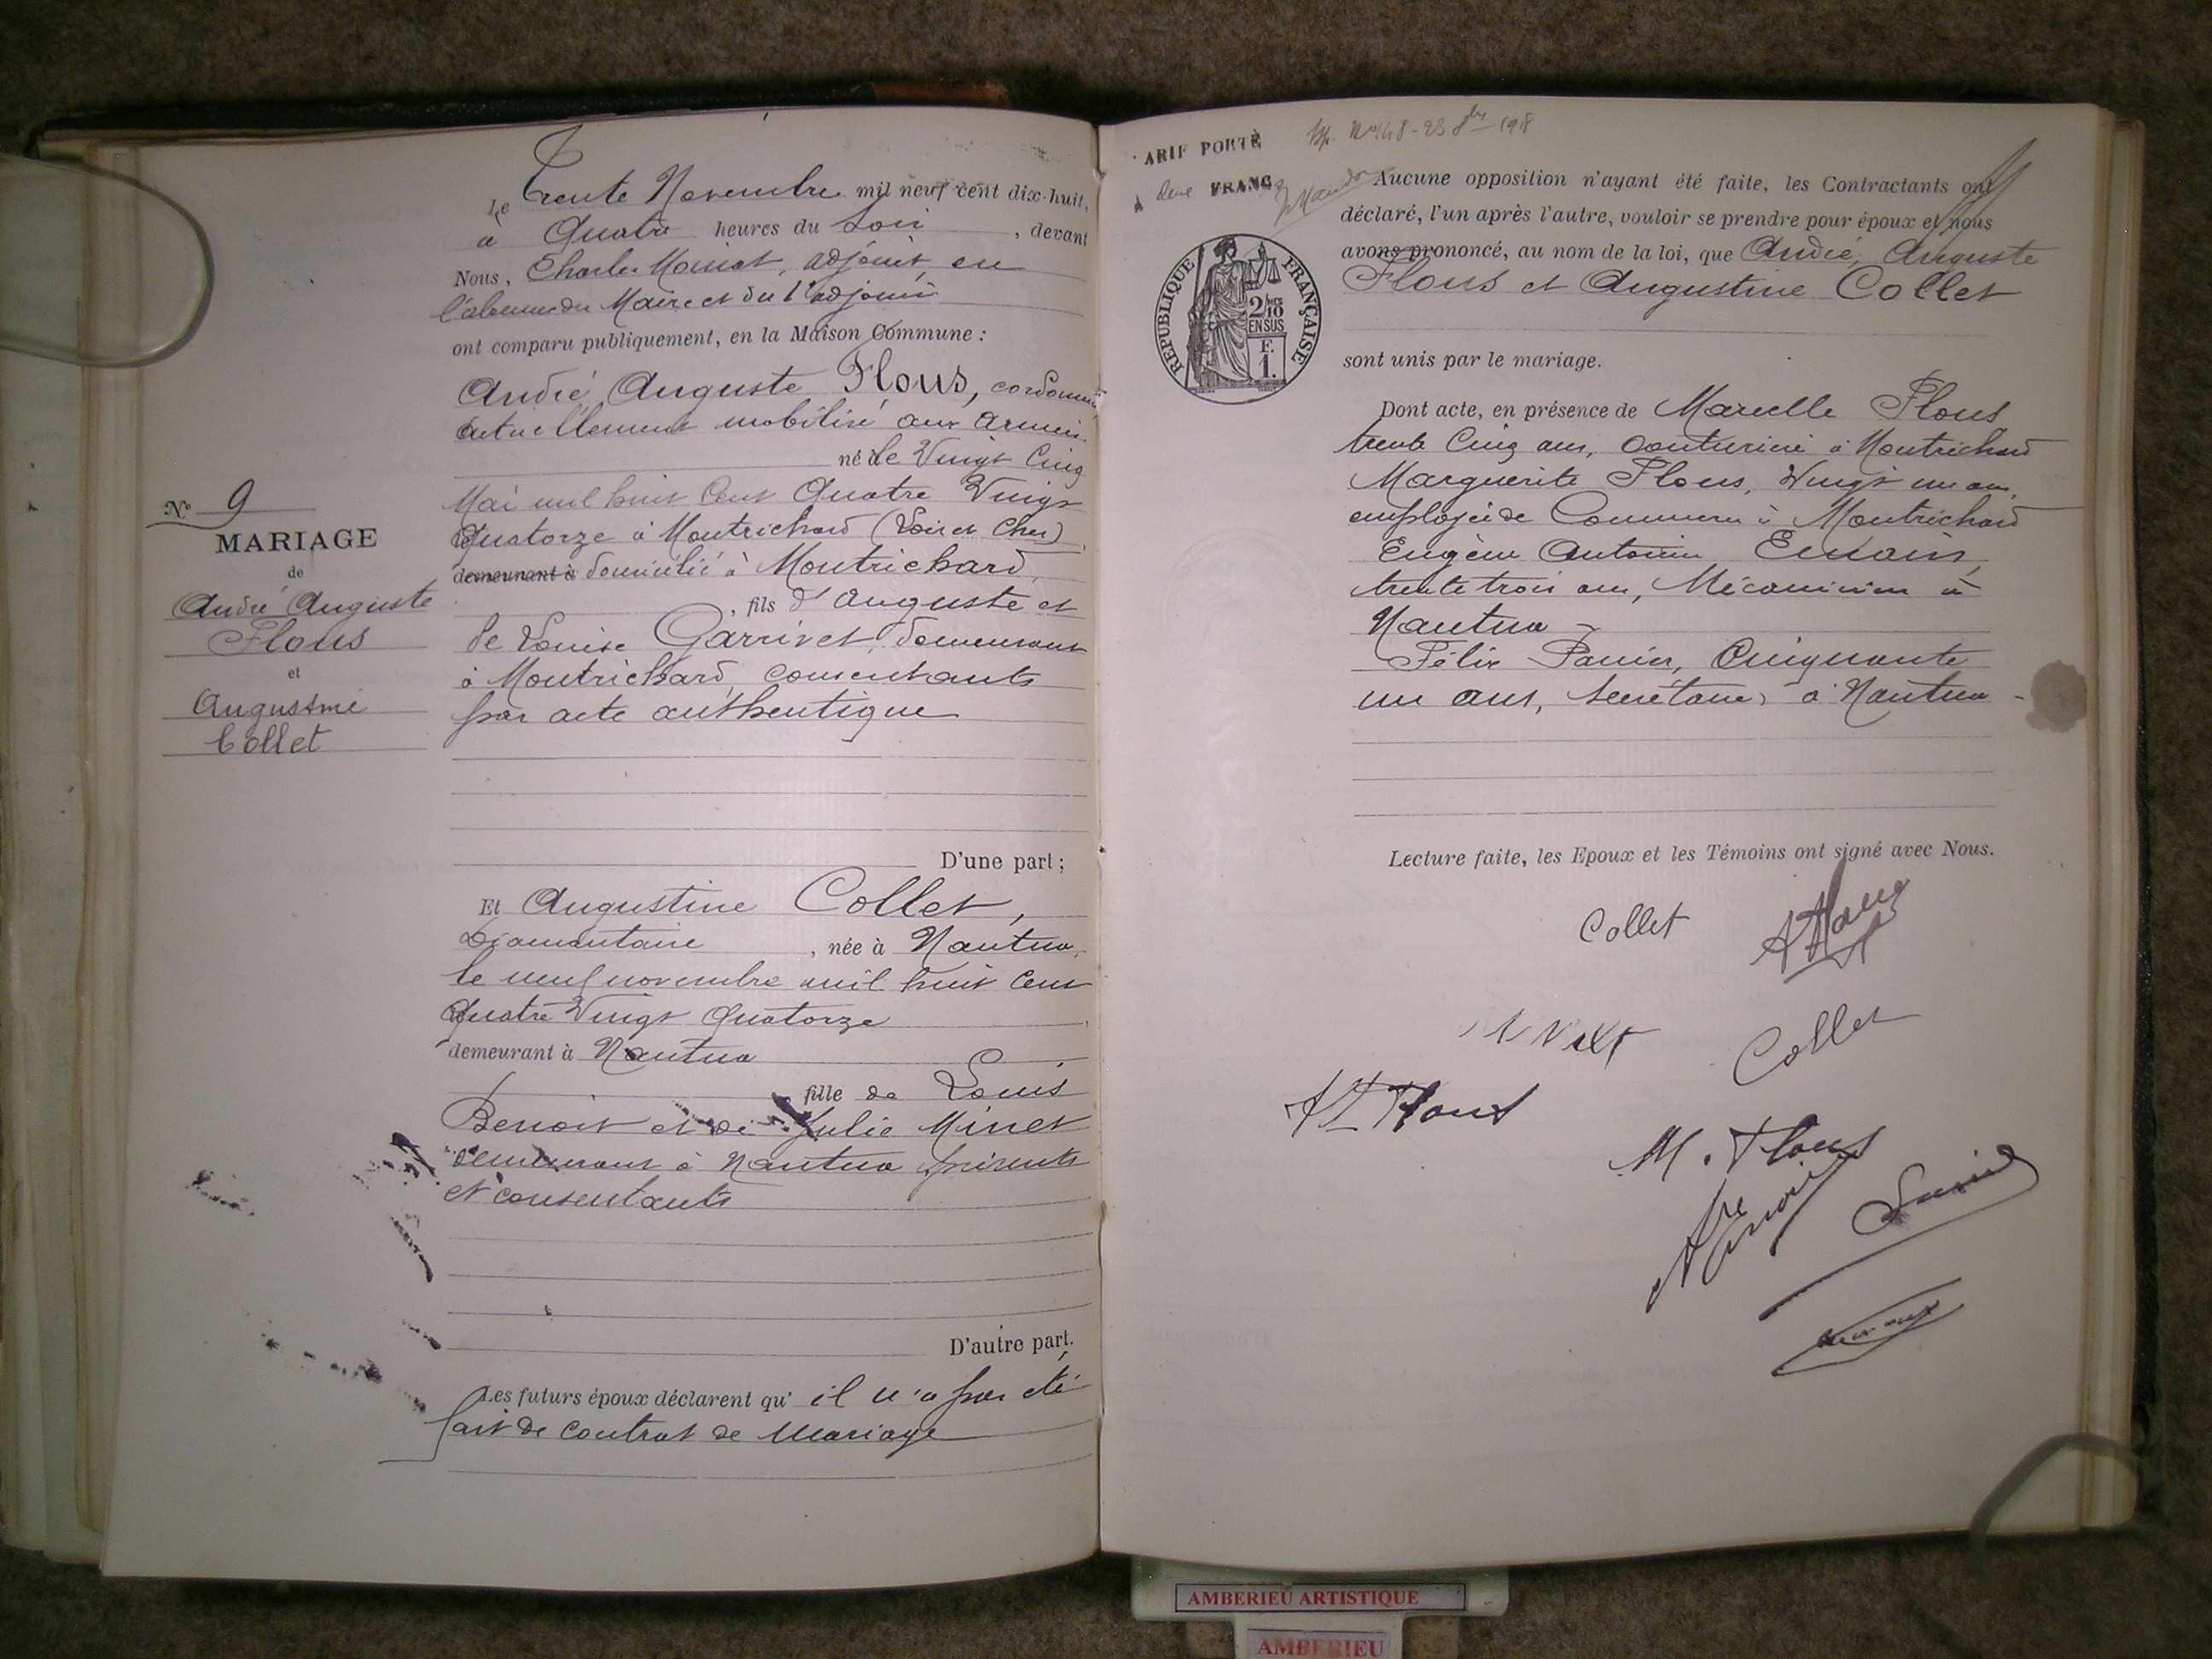 Le Trente Novembre mil neuf cent dix-huit,
à Quatre heures du Soir, devant
Nous, Charles Moinat, adjoint, en
l'absence du Maire et du 1er adjoint
ont comparu publiquement, en la Maison Commune :
André Auguste Flous, cordonnier
actuellement mobilisé aux armées
né le Vingt Cinq
Mai mil huit Cent Quatre Vingt
Quatorze à Montrichard (Loir et Cher)
demeurant à domicilié à Montrichard,
, fils d'Auguste et
de Louise Garrivet, demeurant
à Montrichard, consentants
par acte authentique
D'une part ;
Et Augustine Collet,
Diamantaire, née à Nantua,
le neuf novembre mil huit Cent
Quatre Vingt Quatorze
demeurant à Nantua
fille de Louis
Benoit et de Julie Minet
demeurant à Nantua présents
et consentants
D'autre part.
Les futurs époux déclarent qu'il n'a pas été
fait de contrat de Mariage
No 9
MARIAGE
de
André Auguste
Flous
et
Augustine
Collet
ARIF PORTÉ
A deux FRANCS
RÉPUBLIQUE FRANÇAISE
2/10
EN SUS
F.
1.
Aucune opposition n'ayant été faite, les Contractants ont
déclaré, l'un après l'autre, vouloir se prendre pour époux et nous
avons prononcé, au nom de la loi, que André, Auguste
Flous et Augustine Collet
sont unis par le mariage.
Dont acte, en présence de Marcelle Flous
trente Cinq ans, couturière à Montrichard
Marguerite Flous, Vingt un ans,
employée de Commerce à Montrichard
Eugène Antonin
trente trois ans, Mécanicien à
Nantua
Félix Panier, Cinquante
un ans, Secrétaire, à Nantua
Lecture faite, les Epoux et les Témoins ont signé avec Nous.
Collet
A Flous
Collet
Flous
M. Flous
AMBERIEU ARTISTIQUE
AMBERIEU